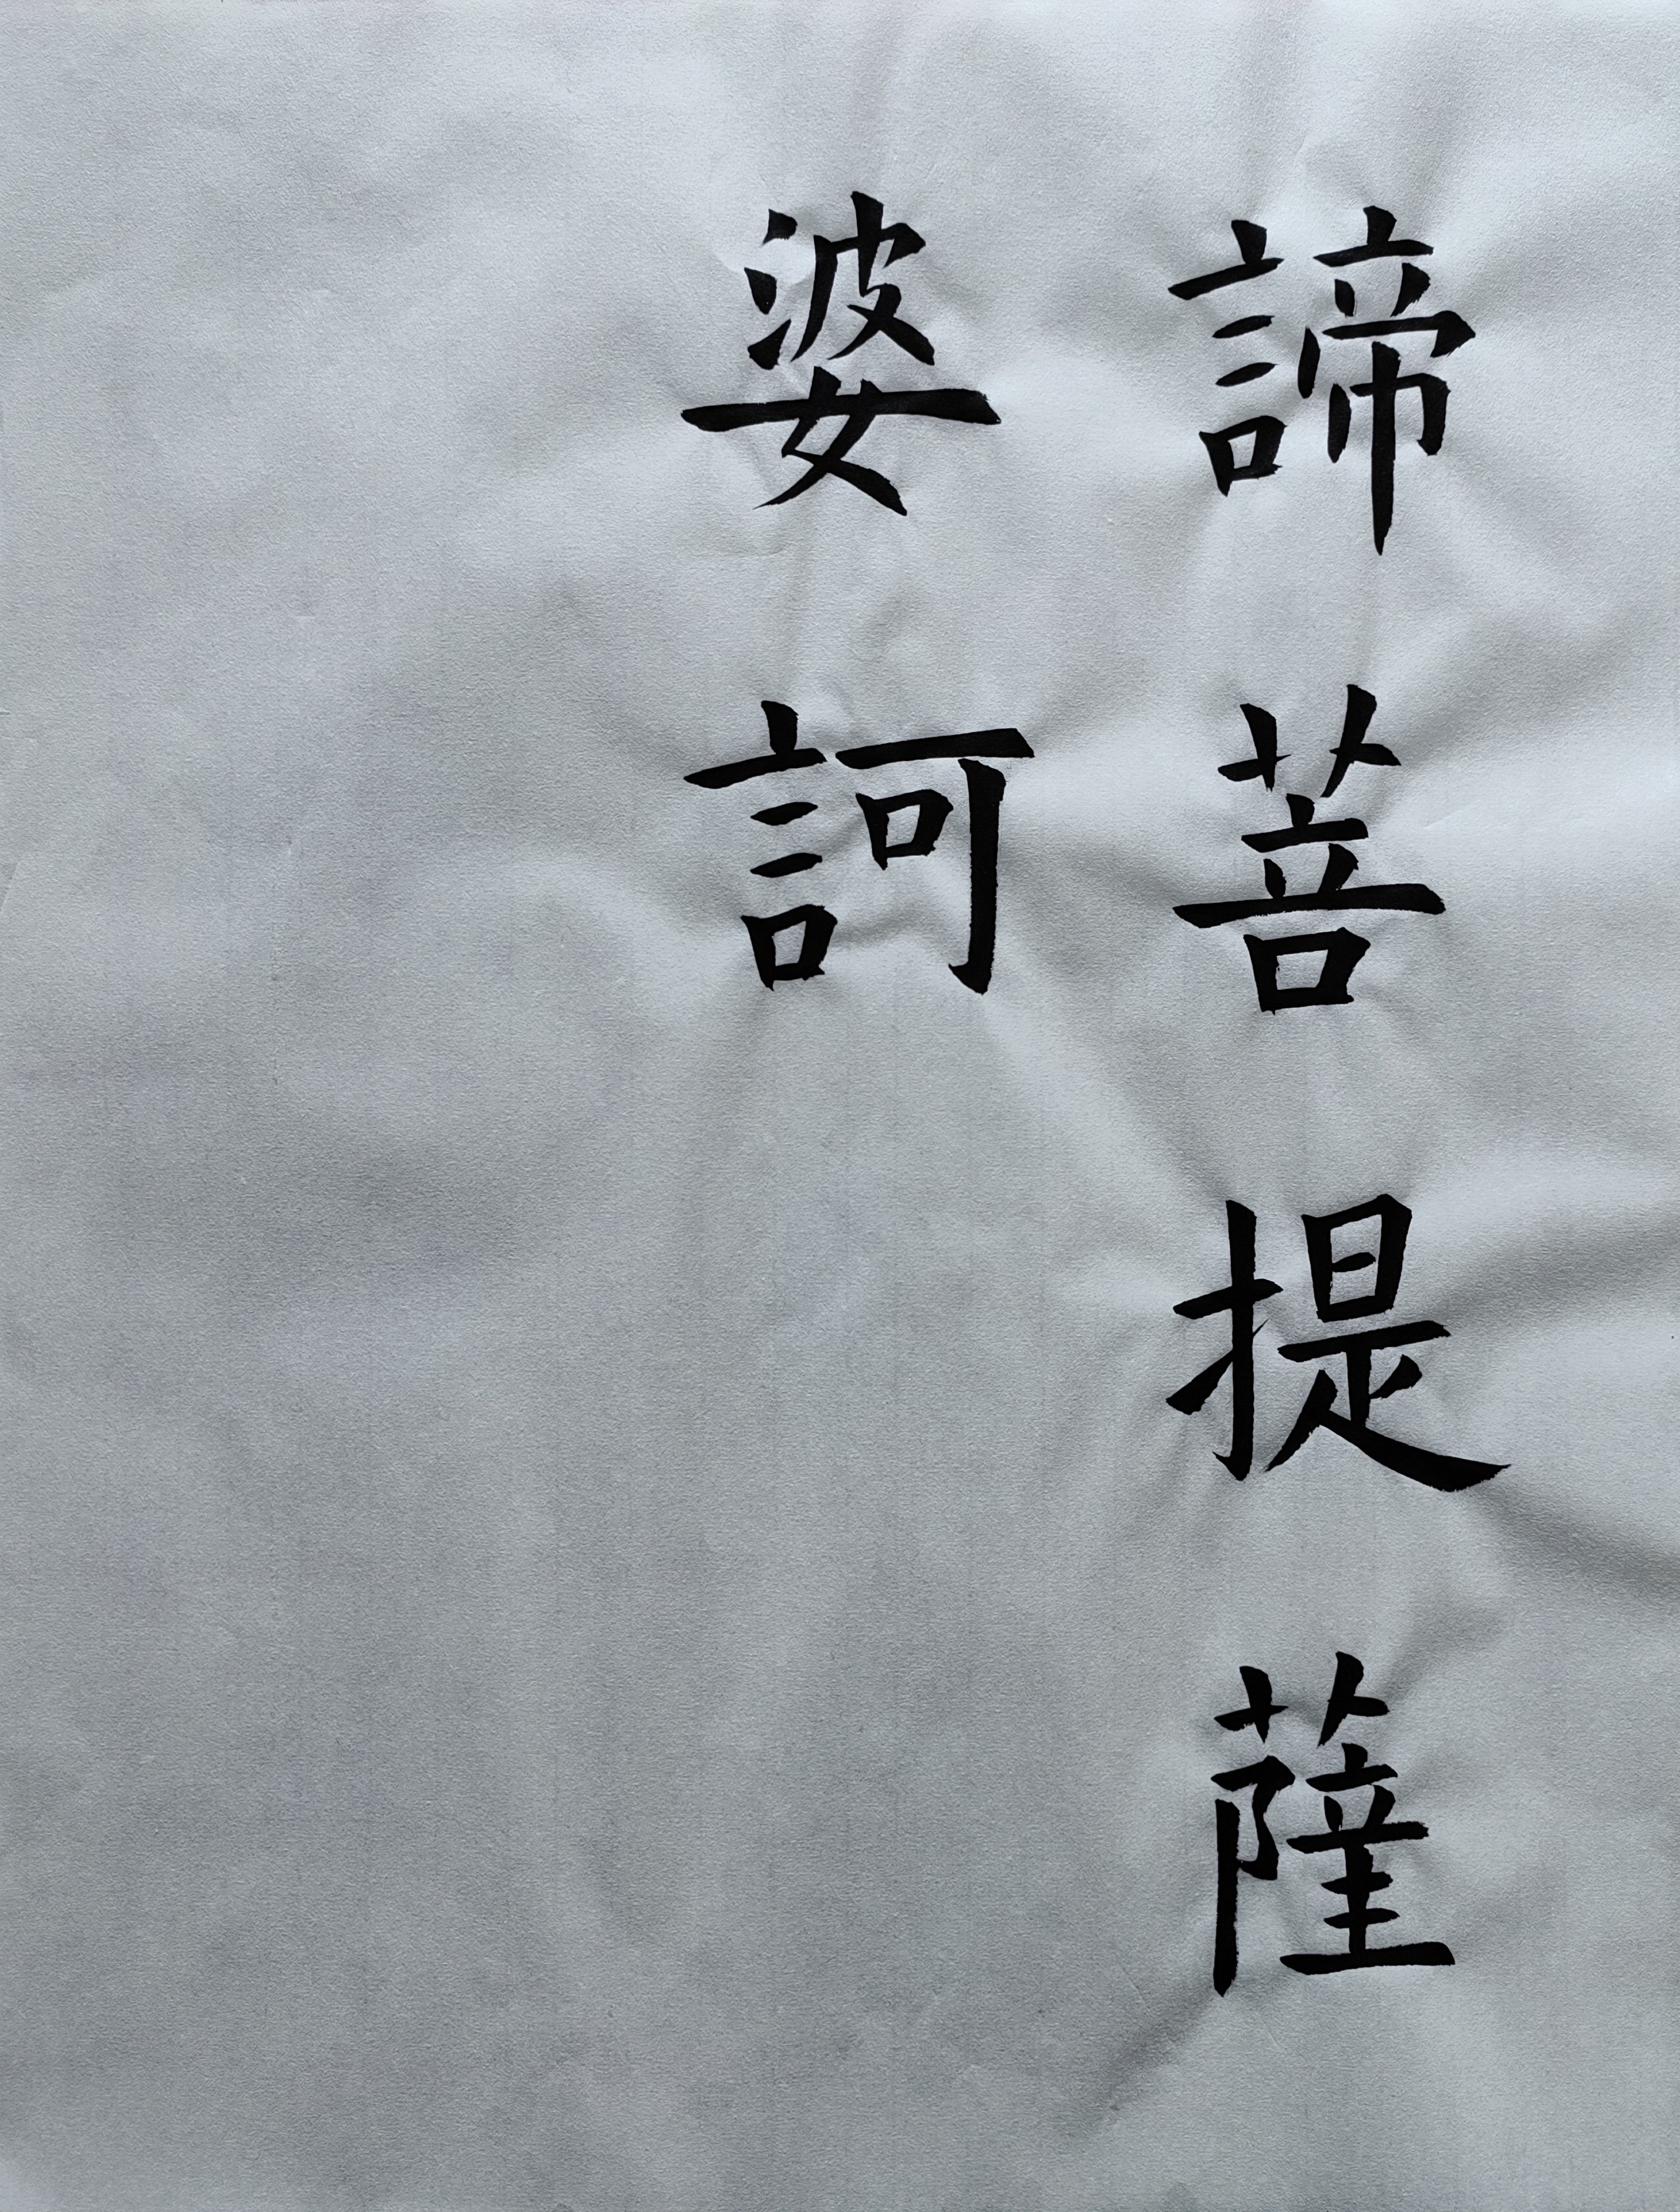 諦菩提薩
婆訶